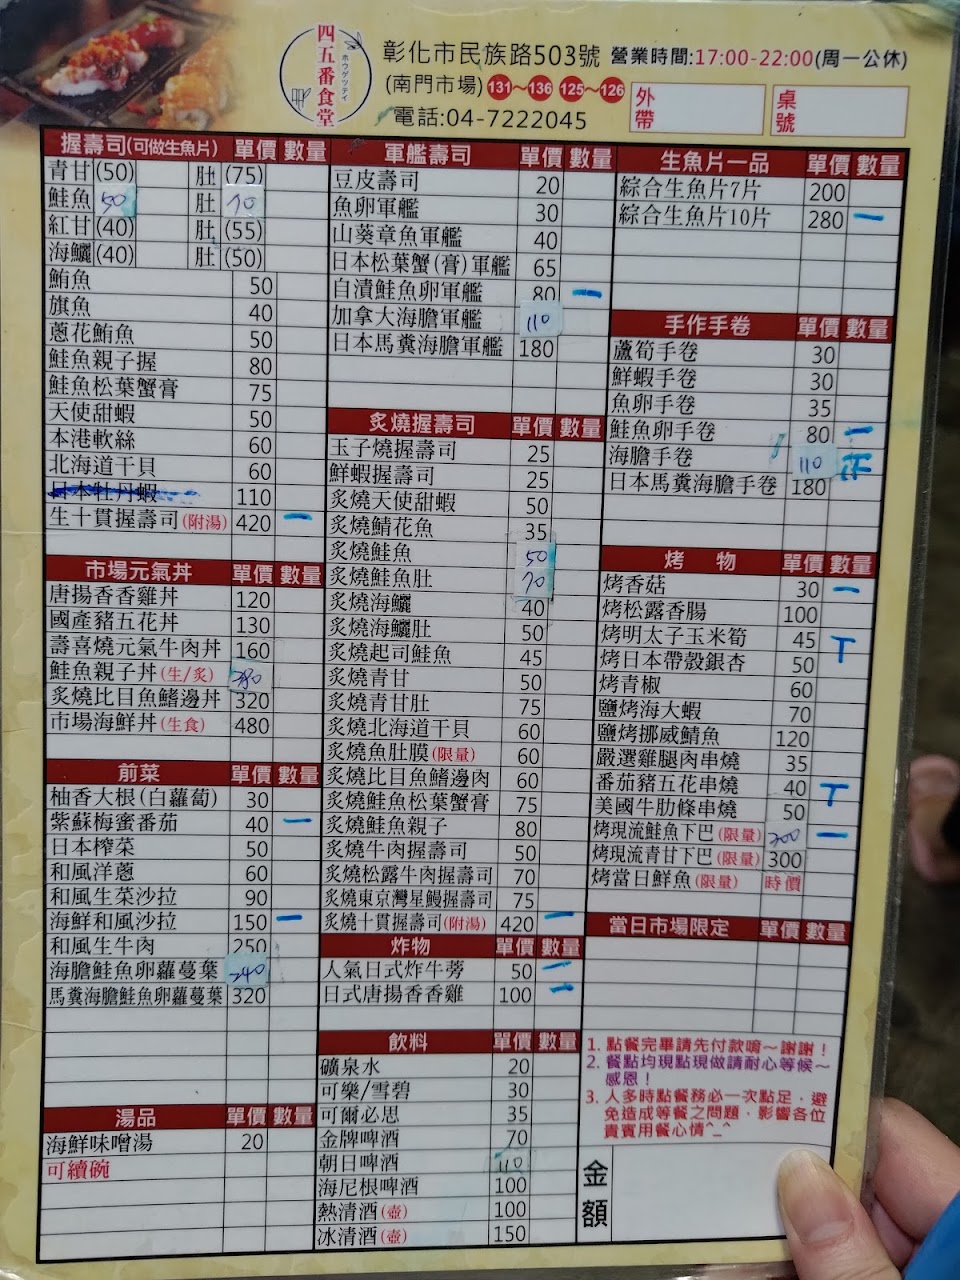 四五番食堂
ホウゲツテイ
彰化市民族路503號 營業時間:17:00-22:00(周一公休)
(南門市場) 131~136 125~126
電話:04-7222045
外帶
桌號
握壽司(可做生魚片) 單價 數量
青甘(50) 肚(75)
鮭魚 50 肚 70
紅甘(40) 肚(55)
海鱺(40) 肚(50)
鮪魚 50
旗魚 40
蔥花鮪魚 50
鮭魚親子握 80
鮭魚松葉蟹膏 75
天使甜蝦 50
本港軟絲 60
北海道干貝 60
日本牡丹蝦 110
生十貫握壽司(附湯) 420 一
市場元氣丼 單價 數量
唐揚香香雞丼 120
國產豬五花丼 130
壽喜燒元氣牛肉丼 160
鮭魚親子丼(生/炙) 280
炙燒比目魚鰭邊丼 320
市場海鮮丼(生食) 480
前菜 單價 數量
柚香大根(白蘿蔔) 30
紫蘇梅蜜番茄 40 一
日本榨菜 50
和風洋蔥 60
和風生菜沙拉 90
海鮮和風沙拉 150 一
和風生牛肉 250
海膽鮭魚卵蘿蔓葉 240
馬糞海膽鮭魚卵蘿蔓葉 320
湯品 單價 數量
海鮮味噌湯 20
可續碗
軍艦壽司 單價 數量
豆皮壽司 20
魚卵軍艦 30
山葵章魚軍艦 40
日本松葉蟹(膏)軍艦 65
自漬鮭魚卵軍艦 80 一
加拿大海膽軍艦 110
日本馬糞海膽軍艦 180
炙燒握壽司 單價 數量
玉子燒握壽司 25
鮮蝦握壽司 25
炙燒天使甜蝦 50
炙燒鯖花魚 35
炙燒鮭魚 50
炙燒鮭魚肚 70
炙燒海鱺 40
炙燒海鱺肚 50
炙燒起司鮭魚 45
炙燒青甘 50
炙燒青甘肚 75
炙燒北海道干貝 60
炙燒魚肚膜(限量) 60
炙燒比目魚鰭邊肉 60
炙燒鮭魚松葉蟹膏 75
炙燒鮭魚親子 80
炙燒牛肉握壽司 50
炙燒松露牛肉握壽司 70
炙燒東京灣星鰻握壽司 75
炙燒十貫握壽司(附湯) 420 一
炸物 單價 數量
人氣日式炸牛蒡 50 一
日式唐揚香香雞 100 一
飲料 單價 數量
礦泉水 20
可樂/雪碧 30
可爾必思 35
金牌啤酒 70
朝日啤酒 110
海尼根啤酒 100
熱清酒(壺) 100
冰清酒(壺) 150
生魚片一品 單價 數量
綜合生魚片7片 200
綜合生魚片10片 280 一
手作手卷 單價 數量
蘆筍手卷 30
鮮蝦手卷 30
魚卵手卷 35
鮭魚卵手卷 80 一
海膽手卷 110 正
日本馬糞海膽手卷 180
烤物 單價 數量
烤香菇 30 一
烤松露香腸 100
烤明太子玉米筍 45 T
烤日本帶殼銀杏 50
烤青椒 60
鹽烤海大蝦 70
鹽烤挪威鯖魚 120
嚴選雞腿肉串燒 35
番茄豬五花串燒 40 T
美國牛肋條串燒 50
烤現流鮭魚下巴(限量) 200 一
烤現流青甘下巴(限量) 300
烤當日鮮魚(限量) 時價
當日市場限定 單價 數量
1. 點餐完畢請先付款唷~謝謝!
2. 餐點均現點現做請耐心等候~
感恩!
3. 人多時點餐務必一次點足,避
免造成等餐之問題,影響各位
貴賓用餐心情^_^
金額